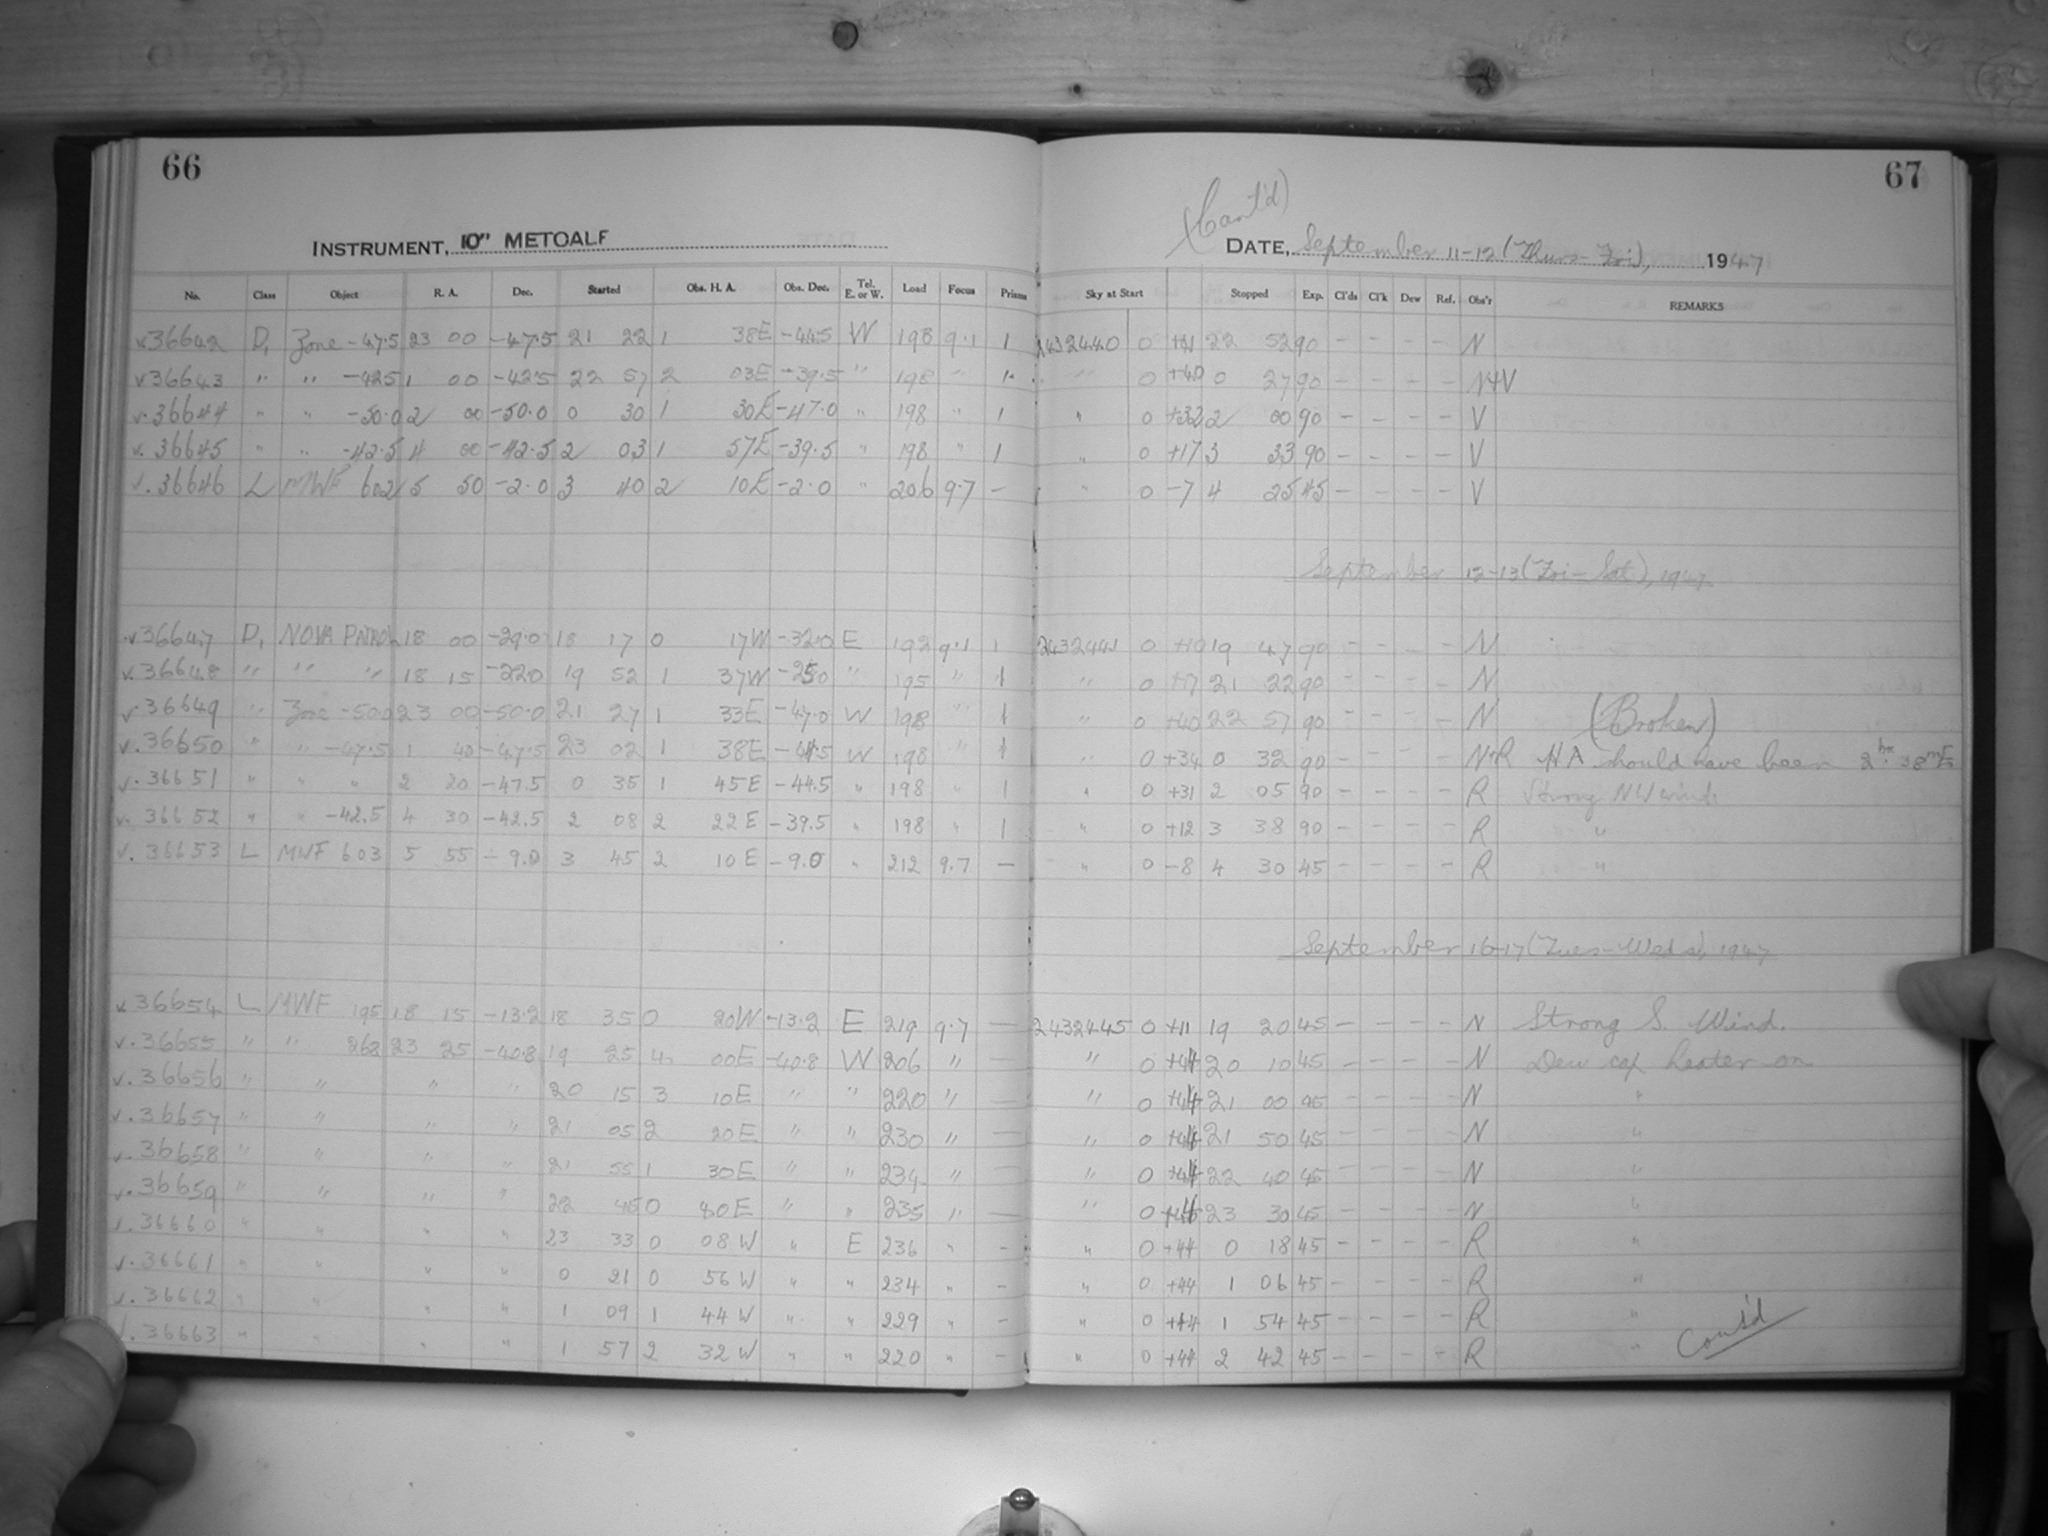 66
INSTRUMENT, 10" METCALF
No. Class Object R. A. Dec. Started Obs. H. A. Obs. Dec. Tel. E. or W. Load Focus Prisms
v 36642 D, Zone -47.5 23 00 -47.5 21 22 1 38E -44.5 W 198 9.1 1
v 36643 " " -42.5 1 00 -42.5 22 57 2 03E -39.5 " 198 " 1
v. 36644 " " -50.0 2 00 -50.0 0 30 1 30E -47.0 " 198 " 1
v. 36645 " " -42.5 4 00 -42.5 2 03 1 57E -39.5 " 198 " 1
v. 36646 L MWF 602 5 50 -2.0 3 40 2 10E -2.0 " 206 9.7 –
v 36647 D, NOVA PATROL 18 00 -29.0 18 17 0 17W -32.0 E 192 9.1 1
v. 36648 " " " 18 15 -22.0 19 52 1 37W -25.0 " 195 " 1
v 36649 " Zone -50.0 23 00 -50.0 21 27 1 33E -47.0 W 198 " 1
v. 36650 " " -47.5 1 40 -47.5 23 02 1 38E -44.5 W 198 " 1
v. 36651 " " " 2 20 -47.5 0 35 1 45E -44.5 " 198 " 1
v. 36652 " " -42.5 4 30 -42.5 2 08 2 22E -39.5 " 198 " 1
v. 36653 L MWF 603 5 55 -9.0 3 45 2 10E -9.0 " 212 9.7 –
v 36654 L MWF 195 18 15 -13.2 18 35 0 20W -13.2 E 219 9.7 –
v. 36655 " " 268 23 25 -40.8 19 25 4 00E -40.8 W 206 " –
v. 36656 " " " " 20 15 3 10E " " 220 " –
v. 36657 " " " " 21 05 2 20E " " 230 " –
v. 36658 " " " " 21 55 1 30E " " 234 " –
v. 36659 " " " " 22 45 0 40E " " 235 " –
v. 36660 " " " " 23 33 0 08W " E 236 " –
v. 36661 " " " " 0 21 0 56W " " 234 " –
v. 36662 " " " " 1 09 1 44W " " 229 " –
v. 36663 " " " " 1 57 2 32W " " 220 " –
67
(Cont'd)
DATE, September 11-12 (Thurs-Fri), 1947
Sky at Start Stopped Exp. Cl'ds Cl'k Dew Ref. Obs'r REMARKS
2432440 0 +41 22 52 90 – – – – N
" 0 +40 0 27 90 – – – – N+V
" 0 +32 2 00 90 – – – – V
" 0 +17 3 33 90 – – – – V
" 0 -7 4 25 45 – – – – V
September 12-13 (Fri-Sat), 1947
2432441 0 +10 19 47 90 – – – – N
" 0 +7 21 22 90 – – – – N
" 0 +40 22 57 90 – – – – N (Broken)
" 0 +34 0 32 90 – – – N+R HA should have been 2 hr. 38 m E
" 0 +31 2 05 90 – – – – R Strong NW wind.
" 0 +12 3 38 90 – – – – R "
" 0 -8 4 30 45 – – – – R "
September 16-17 (Tues-Weds), 1947
2432445 0 +11 19 20 45 – – – – N Strong S. Wind.
" 0 +44 20 10 45 – – – – N Dew cap heater on
" 0 +44 21 00 45 – – – – N "
" 0 +44 21 50 45 – – – – N "
" 0 +44 22 40 45 – – – – N "
" 0 +44 23 30 45 – – – – N "
" 0 +44 0 18 45 – – – – R "
" 0 +44 1 06 45 – – – – R "
" 0 +44 1 54 45 – – – – R "
" 0 +44 2 42 45 – – – – R "
Cont'd